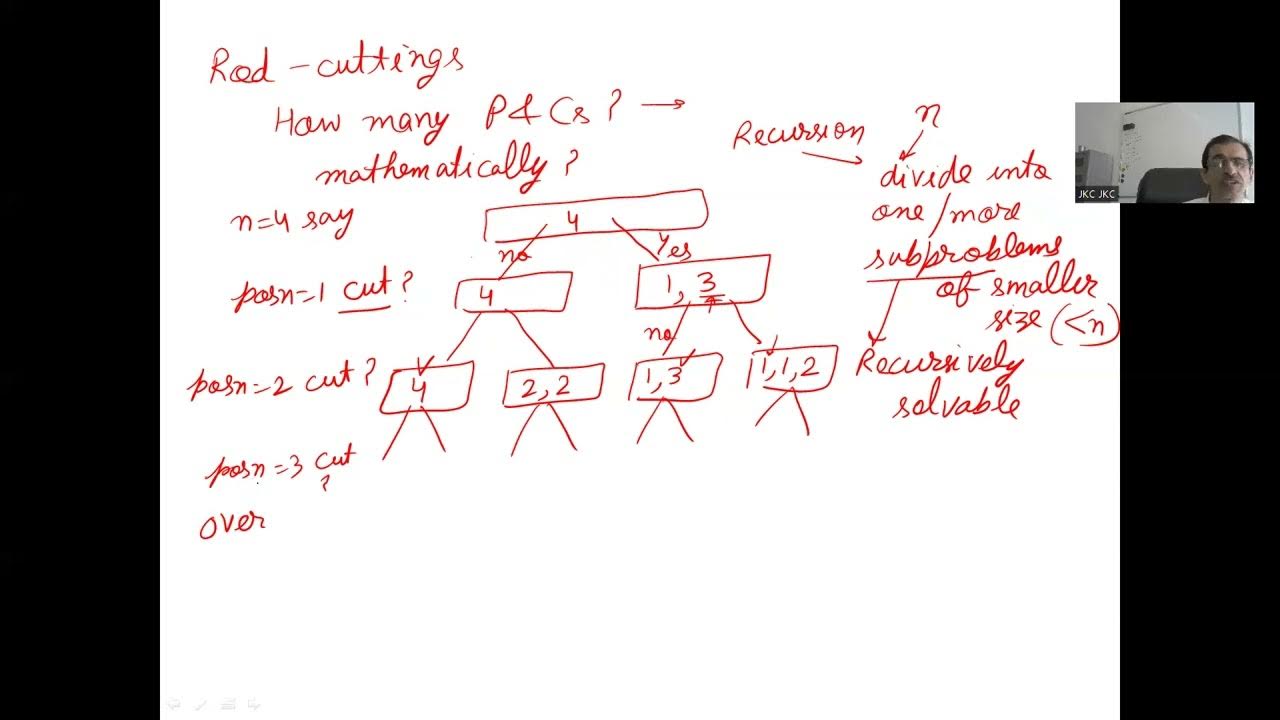 Rod - cuttings
How many P&Cs? →
mathematically?
n=4 say
4
no
Yes
posn=1 cut?
4
1, 3
no
posn=2 cut?
4
2, 2
1, 3
1, 1, 2
posn=3 cut
?
over
Recursion
n
divide into
one/more
subproblems
of smaller
size (<n)
Recursively
solvable
JKC JKC